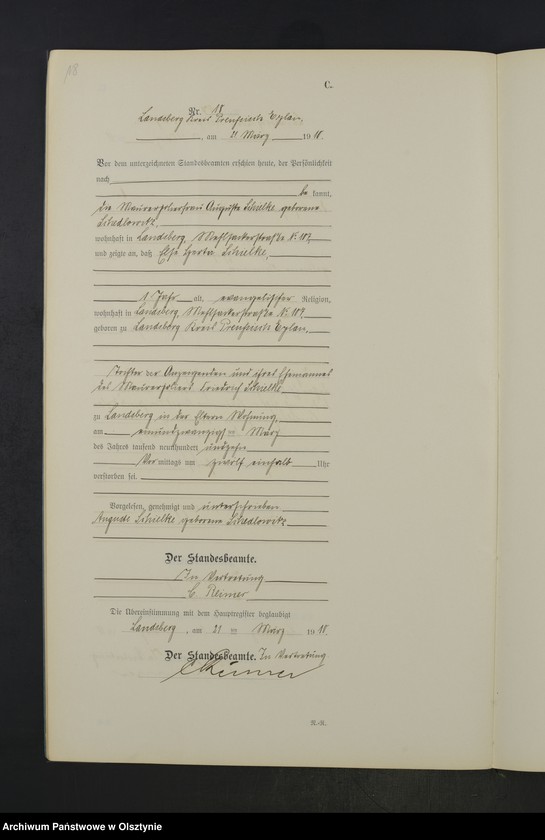 18
C.
Nr. 18
Landsberg Kreis Preußisch Eylau,
, am 21 März 1918.
Vor dem unterzeichneten Standesbeamten erschien heute, der Persönlichkeit
nach
be kannt,
die Maurerpoliersfrau Auguste Schielke geborene
wohnhaft in Landsberg, Mehlsackerstraße Nr. 117,
und zeigte an, daß Else Herta Schielke,
1 Jahr alt, evangelischer Religion,
wohnhaft in Landsberg, Mehlsackerstraße Nr. 117,
geboren zu Landsberg Kreis Preußisch Eylau,
Tochter der Anzeigenden und ihres Ehemannes
des Maurerpoliers Friedrich Schielke
zu Landsberg in der Eltern Wohnung,
am einundzwanzigsten März
des Jahres tausend neunhundert undzehn
Vormittags um zwölf einhalb Uhr
verstorben sei.
Vorgelesen, genehmigt und unterschrieben
Auguste Schielke geborene
Der Standesbeamte.
In Vertretung
C. Reimer
Die Übereinstimmung mit dem Hauptregister beglaubigt
Landsberg, am 21 ten März 1918.
Der Standesbeamte. In Vertretung
C Reimer
R.-R.
Archiwum Państwowe w Olsztynie